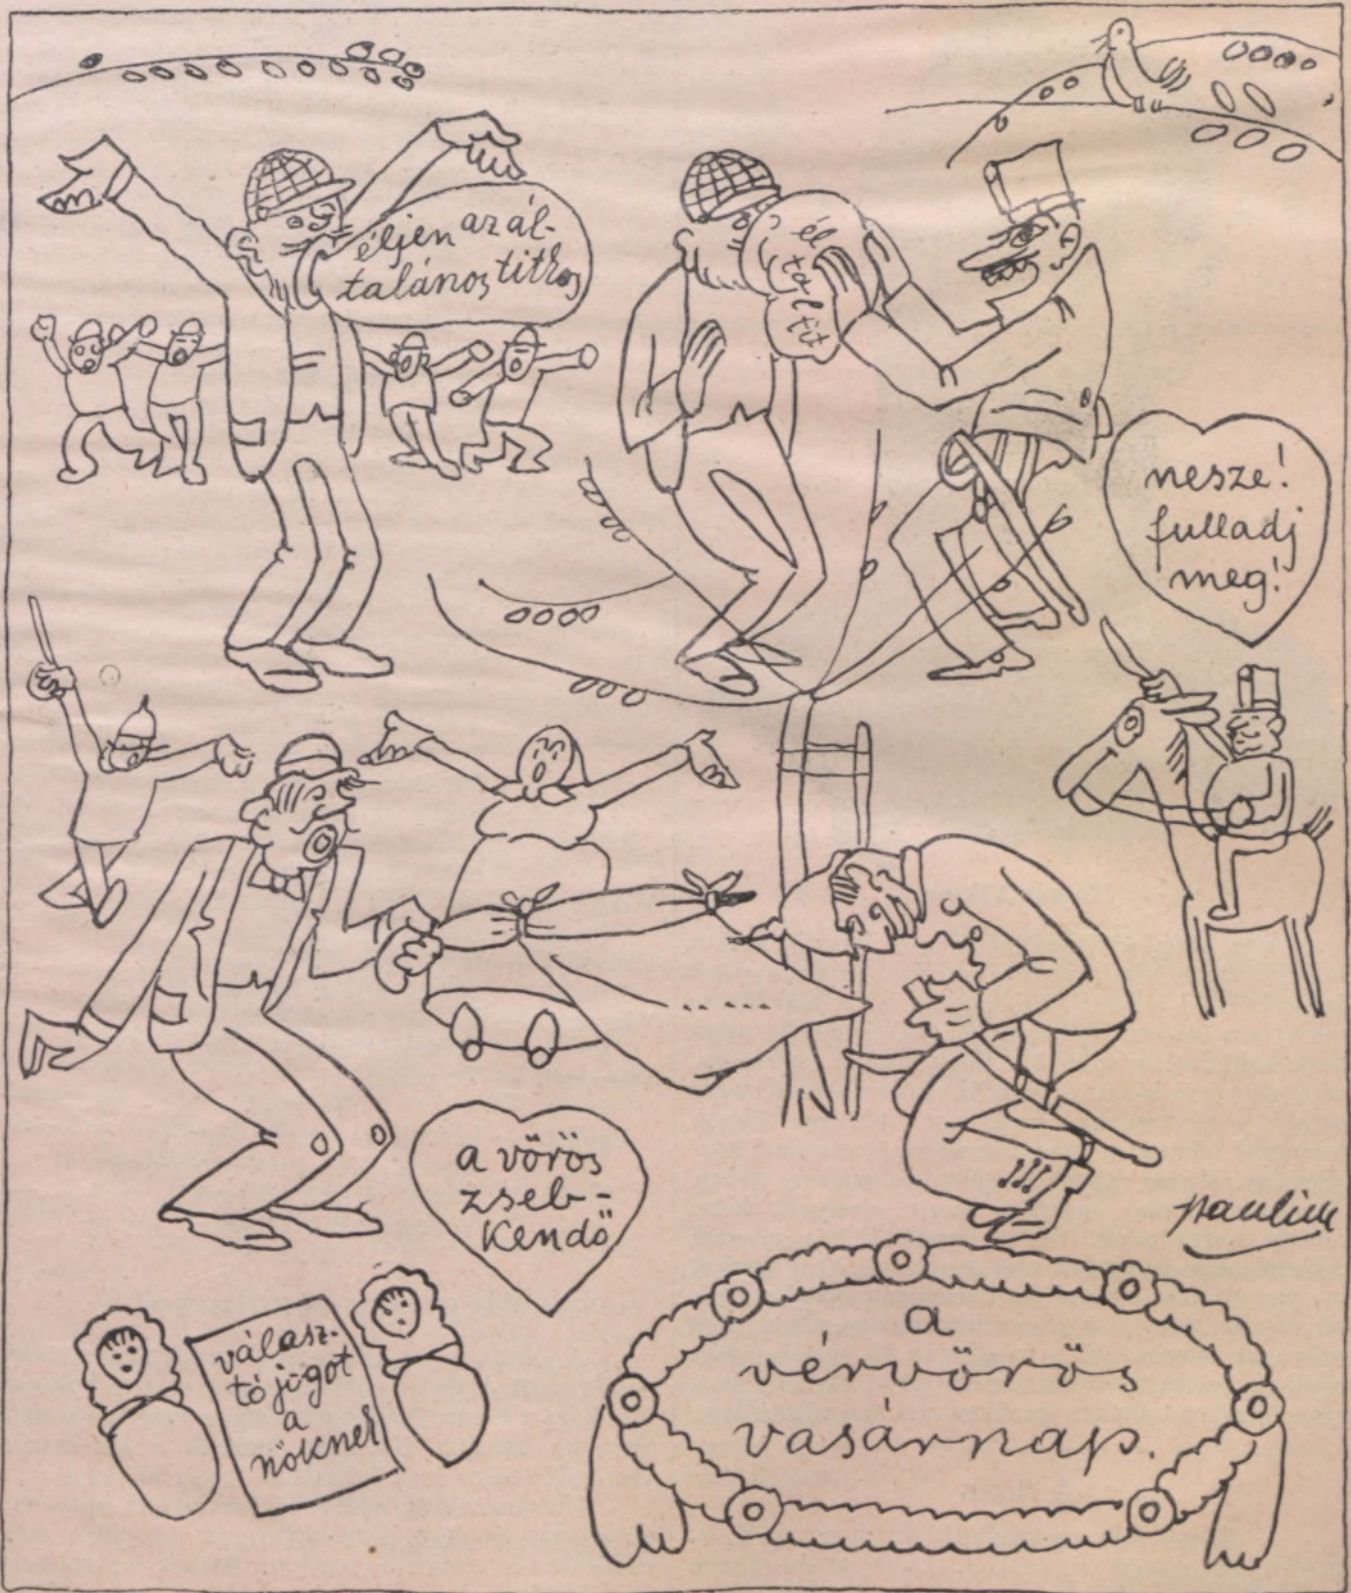 éljen az ál-
talános titkos
él
tal
tit
nesze!
fulladj
meg!
a vörös
zseb-
kendő
paulini
válasz-
tó jogot
a
nőknek
a
vérvörös
vasárnap.